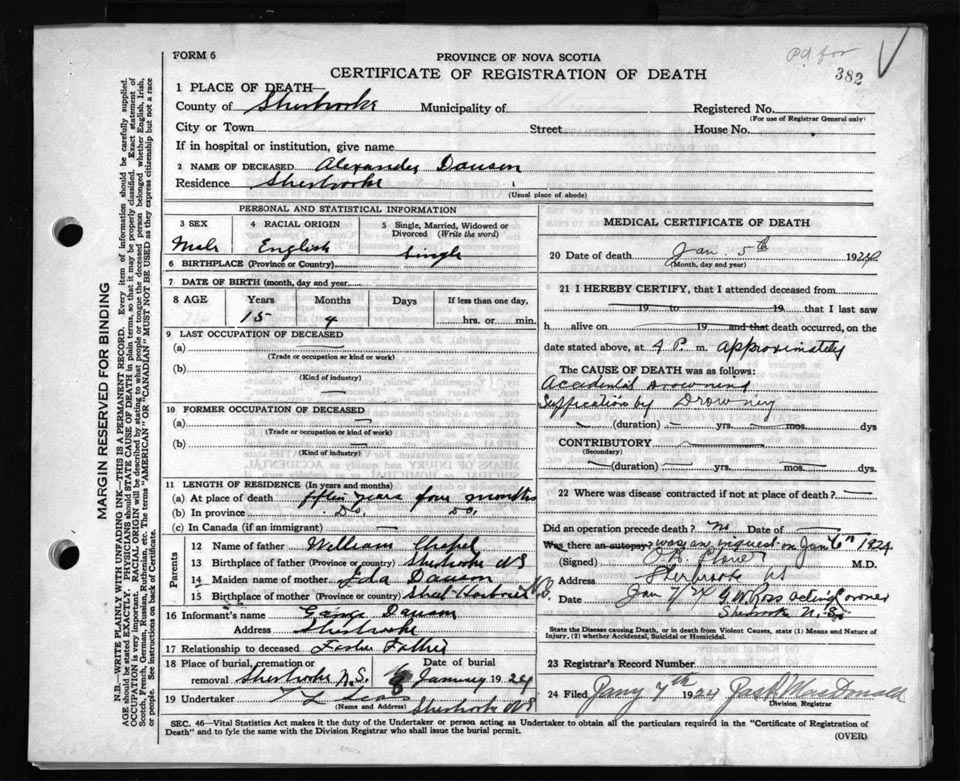 FORM 6
PROVINCE OF NOVA SCOTIA
CERTIFICATE OF REGISTRATION OF DEATH
Pd for
382
1 PLACE OF DEATH—
County of Sherbrooke Municipality of Registered No.
(For use of Registrar General only)
City or Town Street House No.
If in hospital or institution, give name
2 NAME OF DECEASED Alexander Dawson
Residence Sherbrooke
(Usual place of abode)
PERSONAL AND STATISTICAL INFORMATION
3 SEX 4 RACIAL ORIGIN 5 Single, Married, Widowed or Divorced (Write the word)
Male English Single
6 BIRTHPLACE (Province or Country)
7 DATE OF BIRTH (month, day and year)
8 AGE Years Months Days If less than one day,
15 4 hrs. or min.
9 LAST OCCUPATION OF DECEASED
(a)
(Trade or occupation or kind or work)
(b)
(Kind of industry)
10 FORMER OCCUPATION OF DECEASED
(a)
(Trade or occupation or kind of work)
(b)
(Kind of industry)
11 LENGTH OF RESIDENCE (In years and months)
(a) At place of death fifteen years four months
(b) In province Do. Do.
(c) In Canada (if an immigrant)
Parents
12 Name of father William Chapel
13 Birthplace of father (Province or country) Sherbrooke NS
14 Maiden name of mother Ida Dawson
15 Birthplace of mother (Province or country) Sheet Harbour N.S.
16 Informant's name George Dawson
Address Sherbrooke
17 Relationship to deceased Foster Father
18 Place of burial, cremation or Date of burial
removal Sherbrooke N.S. 8 January 1924
19 Undertaker
(Name and Address) Sherbrooke NS
MEDICAL CERTIFICATE OF DEATH
20 Date of death Jan. 5th 1924
(Month, day and year)
21 I HEREBY CERTIFY, that I attended deceased from
19 to 19 that I last saw
h alive on 19 and that death occurred, on the
date stated above, at 4 P. m. approximately
The CAUSE OF DEATH was as follows:
Accidental Drowning
Suffication by Drowney
(duration) yrs. mos. dys
CONTRIBUTORY
(Secondary)
(duration) yrs. mos. dys.
22 Where was disease contracted if not at place of death?
Did an operation precede death? no Date of
Was there an autopsy? was an inquest on Jan 6th 1924
(Signed) M.D.
Address Sherbrooke NS
Date Jan 7/24 G.W. Ross acting coroner
Sherbrooke N.S.
State the Disease causing Death, or in death from Violent Causes, state (1) Means and Nature of Injury, (2) whether Accidental, Suicidal or Homicidal.
23 Registrar's Record Number
24 Filed Jany 7th 1924 MacDonald
Division Registrar
SEC. 46—Vital Statistics Act makes it the duty of the Undertaker or person acting as Undertaker to obtain all the particulars required in the "Certificate of Registration of
Death" and to fyle the same with the Division Registrar who shall issue the burial permit.
(OVER)
MARGIN RESERVED FOR BINDING
N.B.—WRITE PLAINLY WITH UNFADING INK—THIS IS A PERMANENT RECORD. Every item of information should be carefully supplied.
AGE should be stated EXACTLY. PHYSICIANS should STATE CAUSE OF DEATH in plain terms, so that it may be properly classified. Exact statement of
OCCUPATION is very important. RACIAL ORIGIN will be described by stating to what people or tongue the deceased person belonged whether English, Irish,
Scotch, French, German, Russian, Ruthenian, etc. The terms "AMERICAN" OR "CANADIAN" MUST NOT BE USED as they express citizenship but not a race
or people. See instructions on back of Certificate.